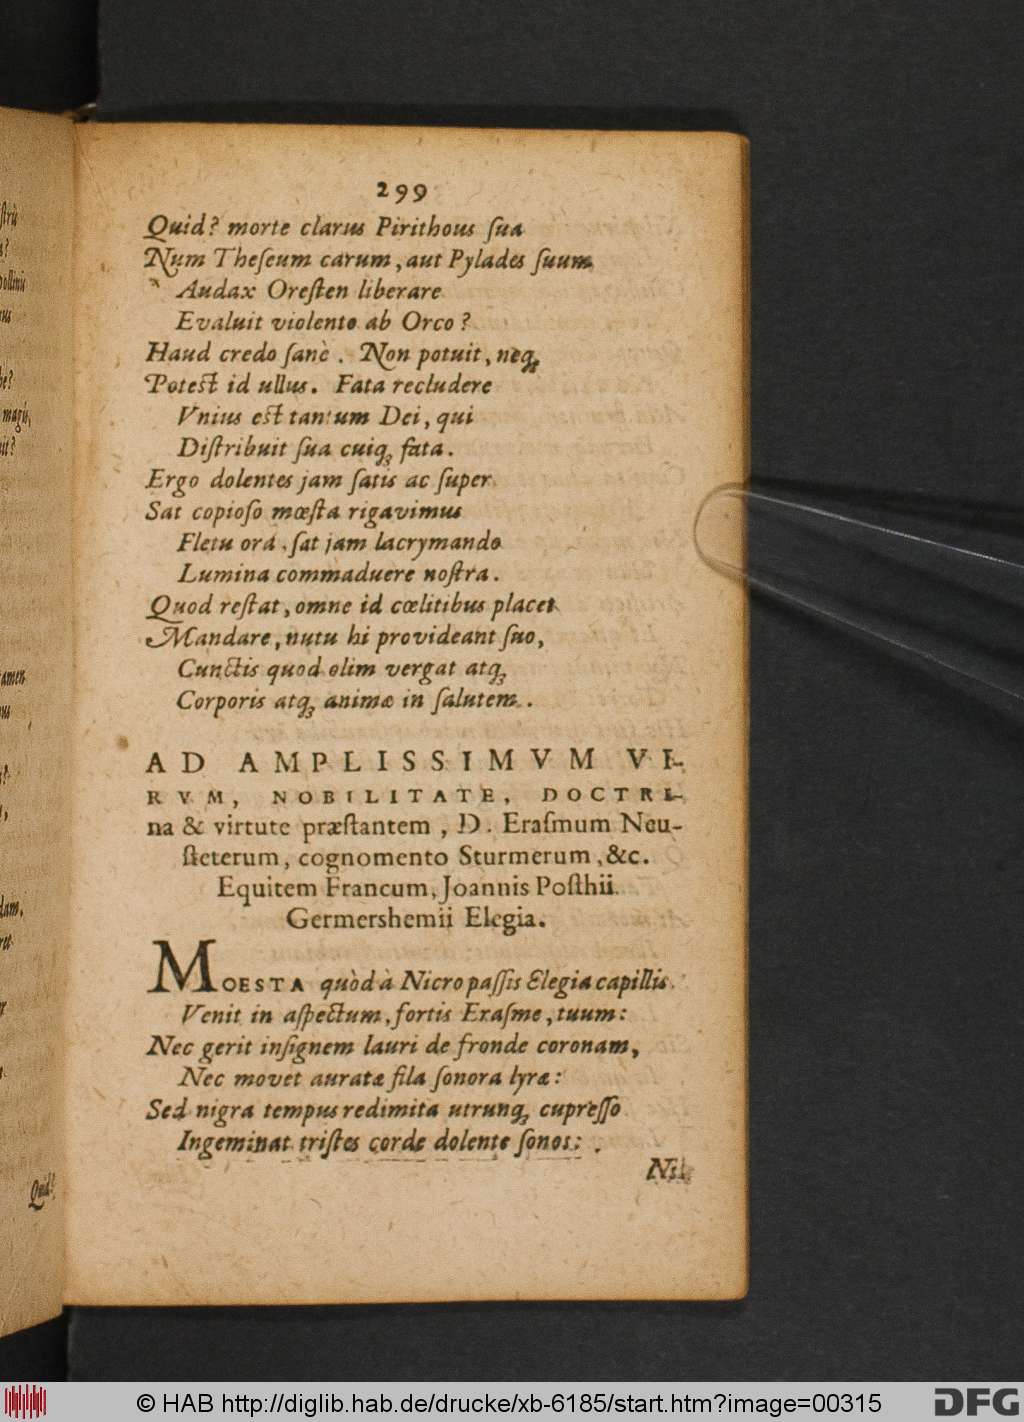 299
Quid? morte clarus Pirithous ſua
Num Theſeum carum, aut Pylades ſuum
Audax Oreſten liberare
Evaluit violento ab Orco?
Haud credo ſanè. Non potuit, neq́;
Poteſt id ullus. Fata recludere
Vnius eſt tantum Dei, qui
Diſtribuit ſua cuiq; fata.
Ergo dolentes jam ſatis ac ſuper
Sat copioſo mœſta rigavimus
Fletu ora, ſat jam lacrymando
Lumina commaduere noſtra.
Quod reſtat, omne id cœlitibus placet
Mandare, nutu hi provideant ſuo,
Cunctis quod olim vergat atq;
Corporis atq; animæ in ſalutem.
AD AMPLISSIMVM VI-
RVM, NOBILITATE, DOCTRI-
na & virtute præſtantem, D. Eraſmum Neu-
ſteterum, cognomento Sturmerum, &c.
Equitem Francum, Joannis Poſthii
Germershemii Elegia.
MOESTA quòd à Nicro paſſis Elegia capillis
Venit in aſpectum, fortis Eraſme, tuum:
Nec gerit inſignem lauri de fronde coronam,
Nec movet auratæ fila ſonora lyræ:
Sed nigra tempus redimita utrunq; cupreſſo
Ingeminat triſtes corde dolente ſonos:
Nil
© HAB http://diglib.hab.de/drucke/xb-6185/start.htm?image=00315
DFG